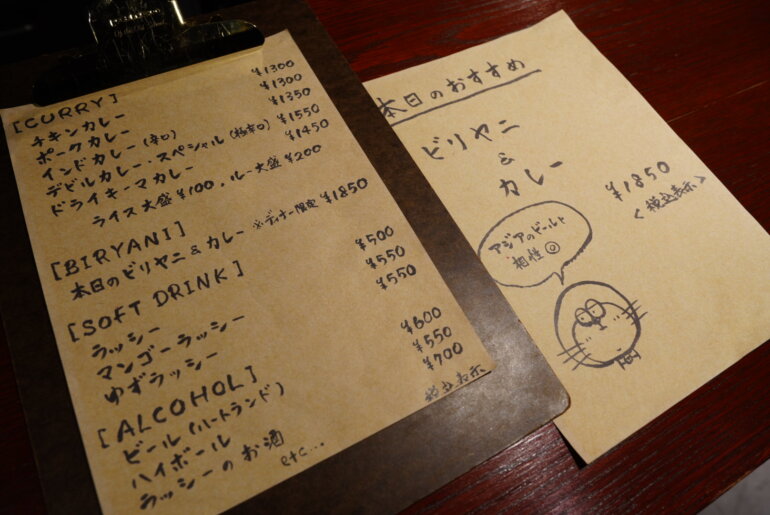 [CURRY]
チキンカレー ¥1300
ポークカレー ¥1300
インドカレー (辛口) ¥1350
デビルカレー・スペシャル (極辛口) ¥1550
ドライキーマカレー ¥1450
ライス大盛 ¥100、ルー大盛 ¥200
[BIRYANI]
本日のビリヤニ & カレー ※ディナー限定 ¥1850
[SOFT DRINK]
ラッシー ¥500
マンゴーラッシー ¥550
ゆずラッシー ¥550
[ALCOHOL]
ビール (ハートランド) ¥600
ハイボール ¥550
ラッシーのお酒 ¥700
etc...
税込表示
本日のおすすめ
ビリヤニ
&
カレー
¥1850
<税込表示>
アジアのビールと
相性◎